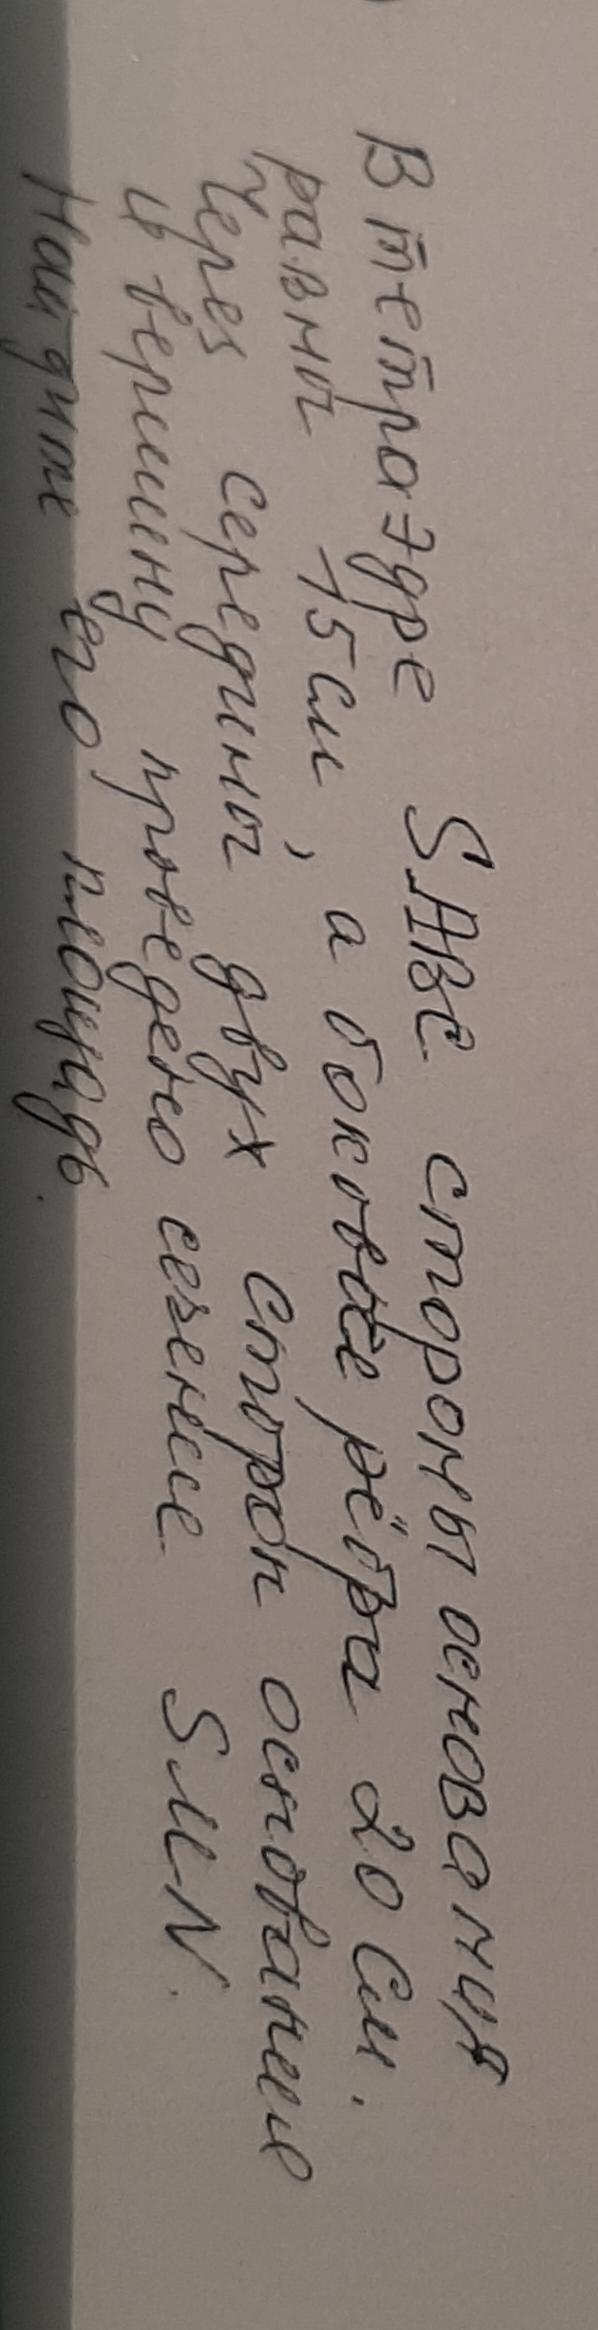 В тетраэдре SABC стороны основания
равны 15см, а боковые рёбра 20 см.
Через середины двух сторон основание
и вершину проведено сечение SMN.
Найдите его площадь.